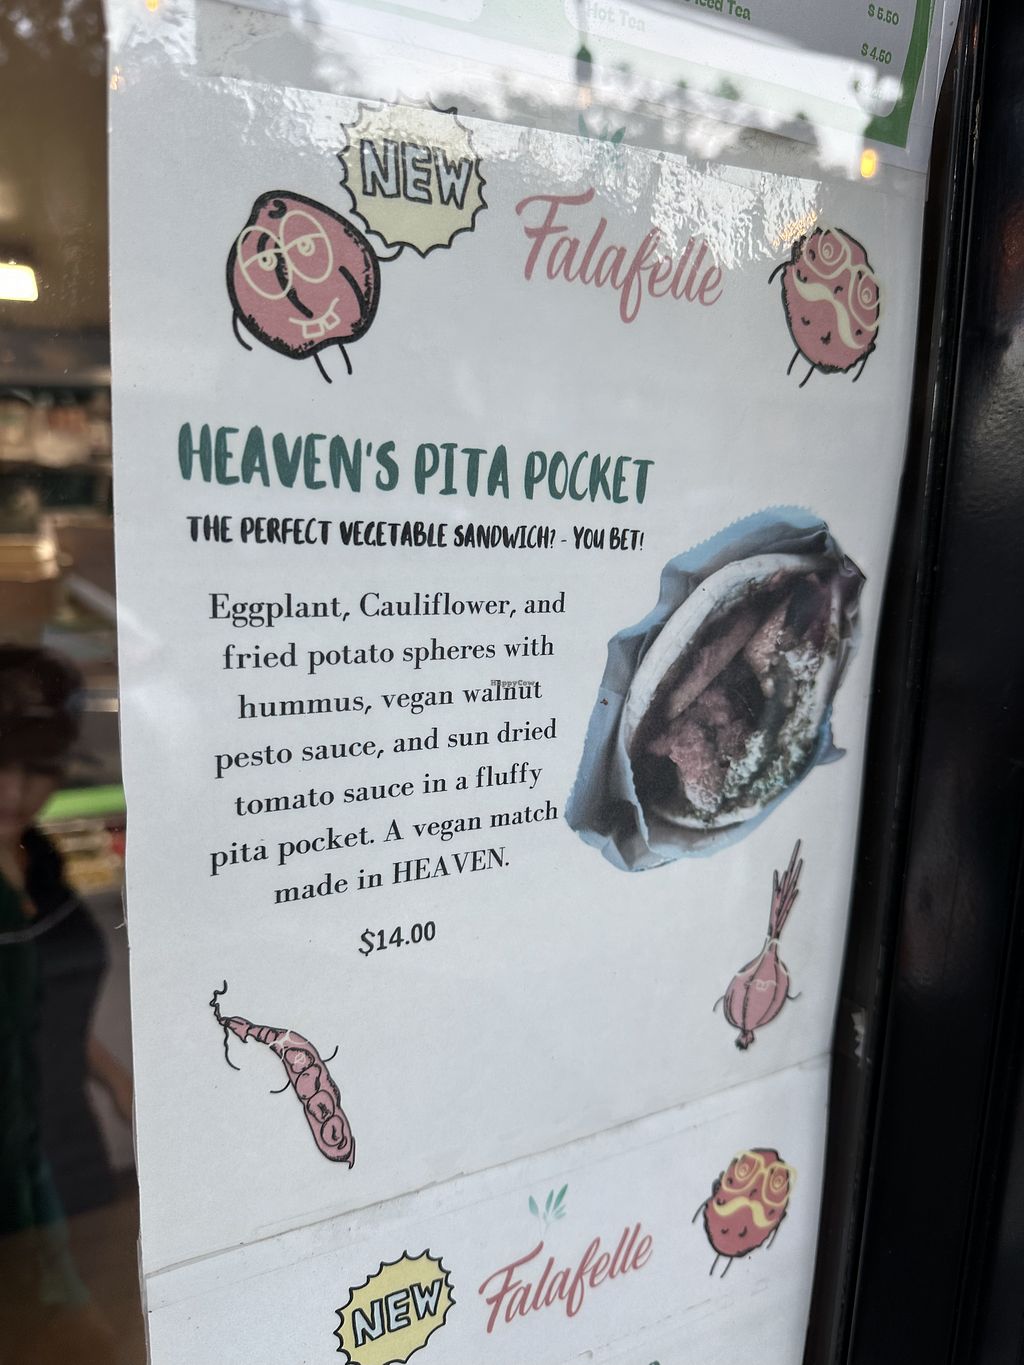 Iced Tea
$5.50
Hot Tea
$4.50
NEW
Falafelle
HEAVEN'S PITA POCKET
THE PERFECT VEGETABLE SANDWICH? - YOU BET!
Eggplant, Cauliflower, and
fried potato spheres with
hummus, vegan walnut
pesto sauce, and sun dried
tomato sauce in a fluffy
pita pocket. A vegan match
made in HEAVEN.
$14.00
HappyCow
NEW
Falafelle